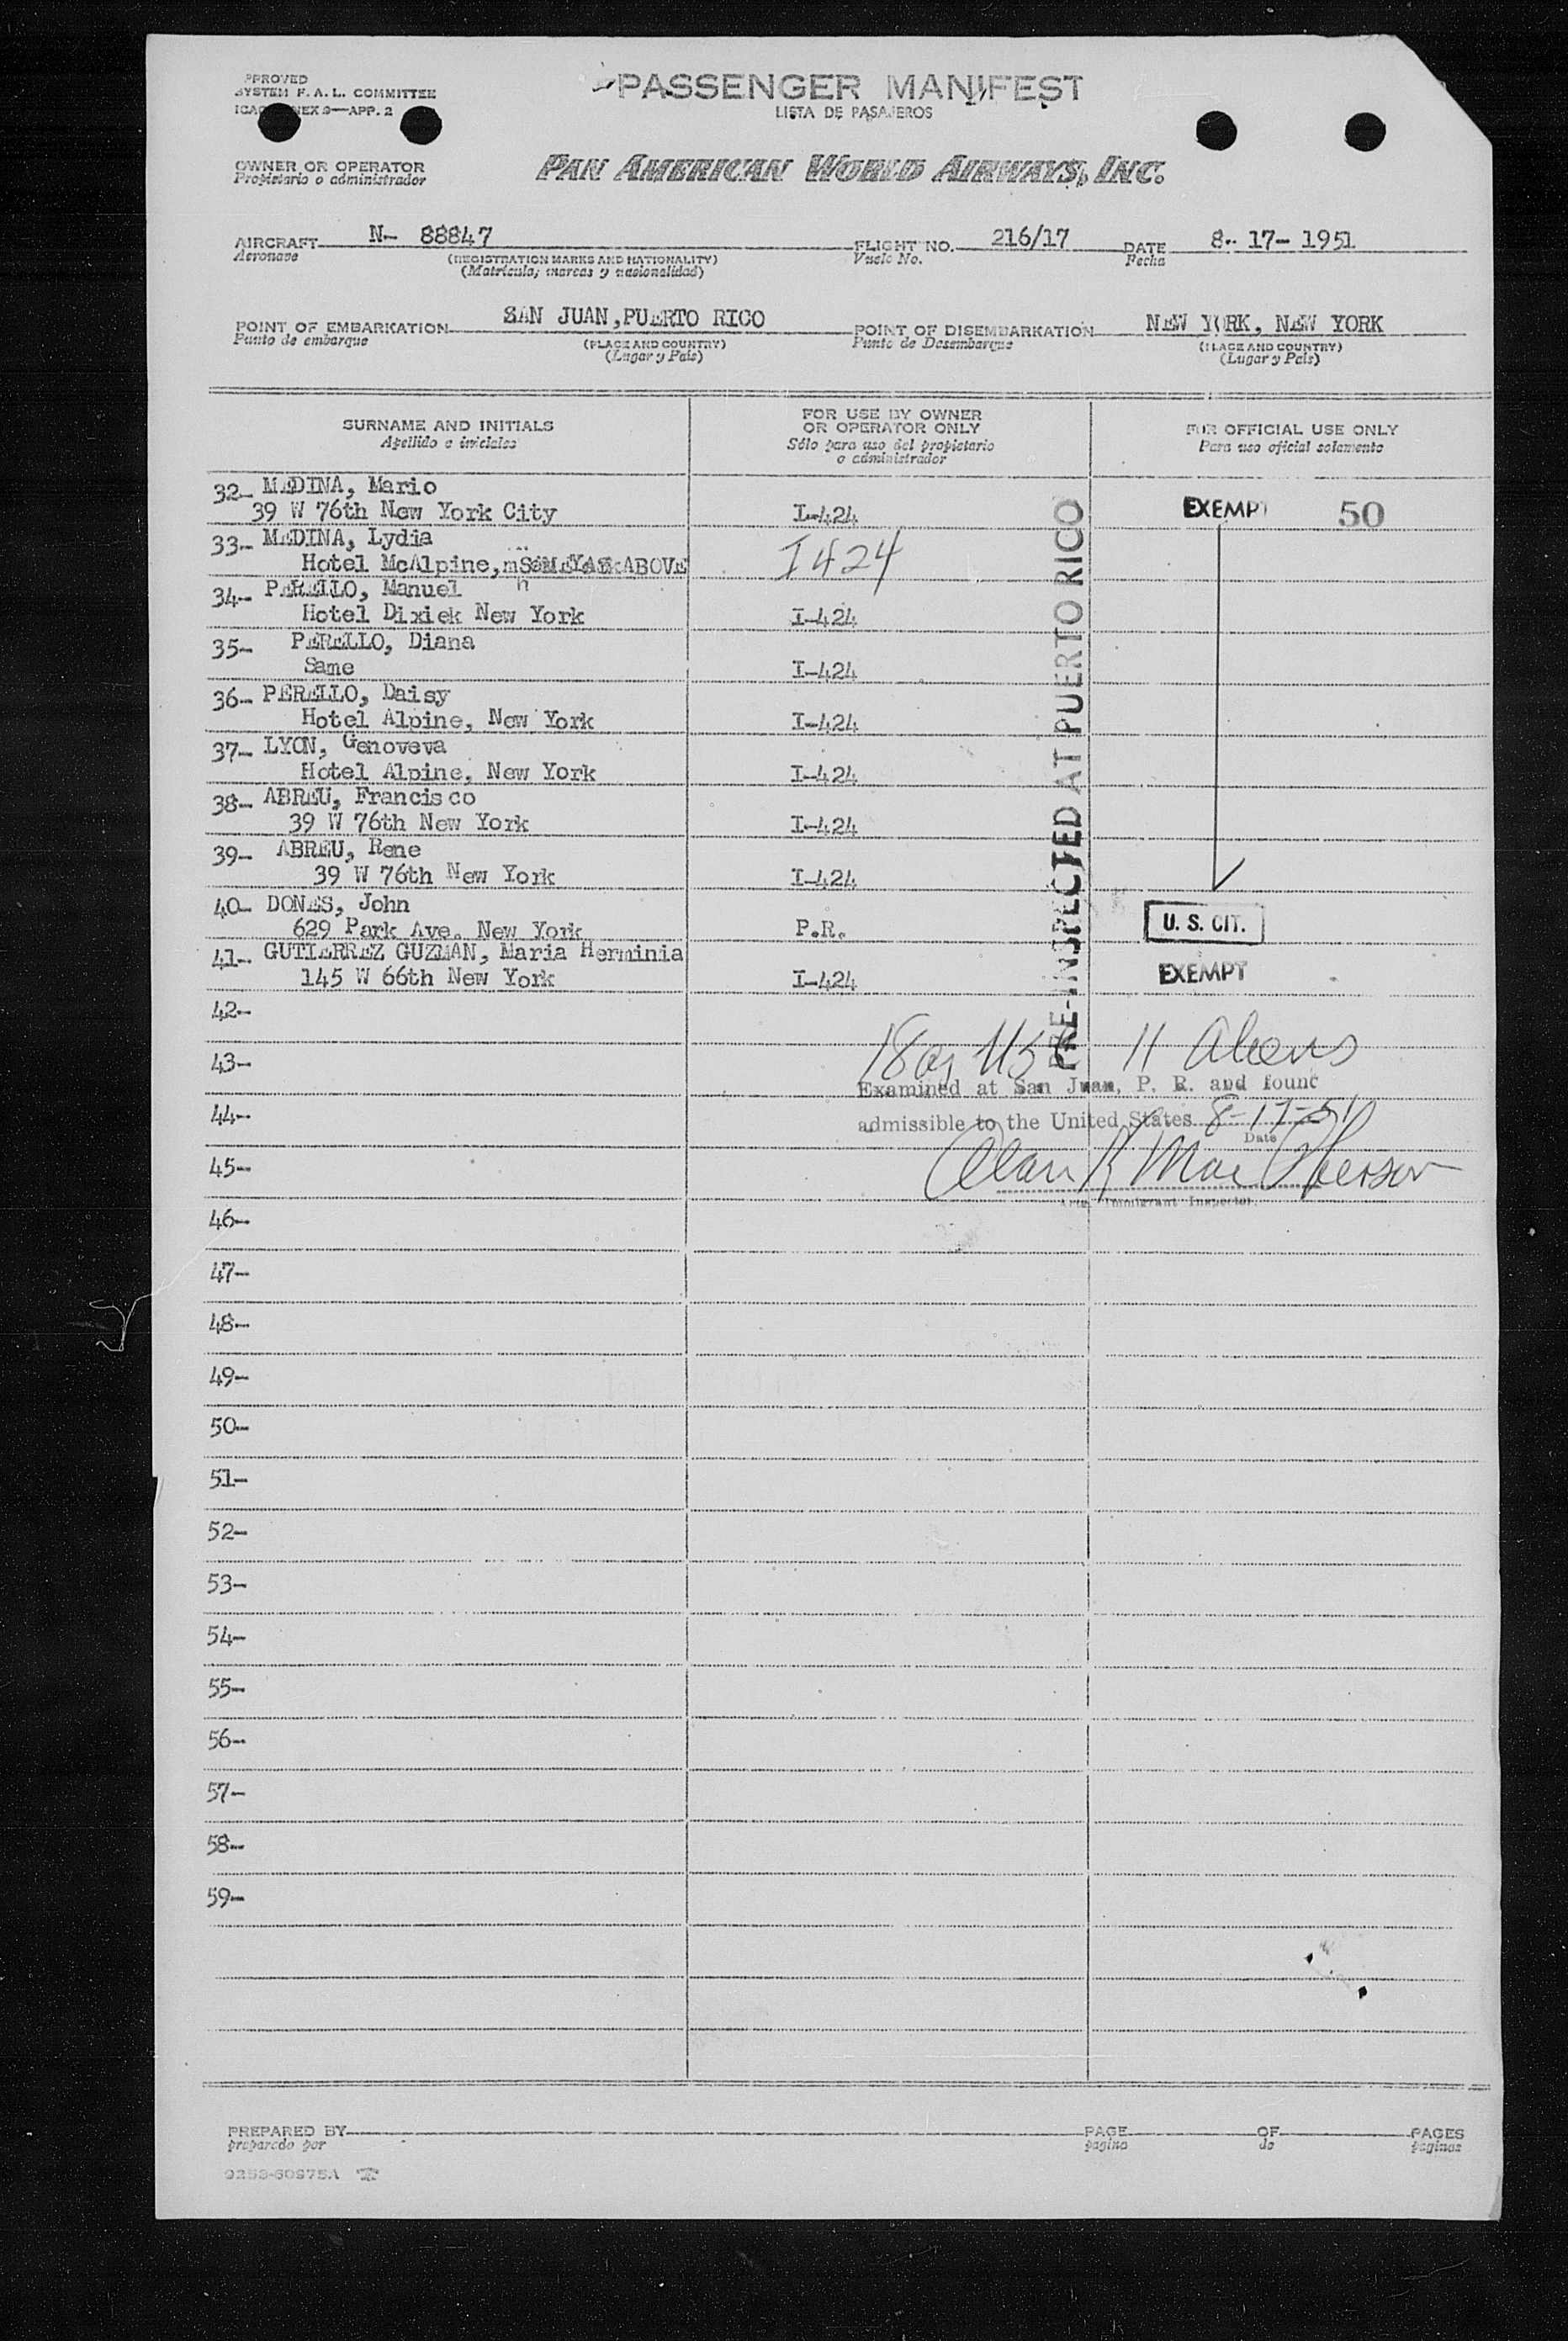 PPROVED
SYSTEM F. A. L. COMMITTEE
NEX 9—APP. 2
PASSENGER MANIFEST
LISTA DE PASAJEROS
OWNER OR OPERATOR
Propietario o administrador
PAN AMERICAN WORLD AIRWAYS, INC.
AIRCRAFT N- 88847 FLIGHT NO. 216/17 DATE 8- 17- 1951
Aeronave (REGISTRATION MARKS AND NATIONALITY) Vuelo No. Fecha
(Matrícula; marcas y nacionalidad)
POINT OF EMBARKATION SAN JUAN,PUERTO RICO POINT OF DISEMBARKATION NEW YORK, NEW YORK
Punto de embarque (PLACE AND COUNTRY) Punto de Desembarque (PLACE AND COUNTRY)
(Lugar y País) (Lugar y País)
SURNAME AND INITIALS FOR USE BY OWNER OR OPERATOR ONLY FOR OFFICIAL USE ONLY
Apellido e iniciales Sólo para uso del propietario o administrador Para uso oficial solamente
32- MEDINA, Mario
39 W 76th New York City I-424 EXEMPT 50
33- MEDINA, Lydia
Hotel McAlpine, SAME AS ABOVE I 424
34- PERELLO, Manuel
Hotel Dixiek New York I-424
35- PERELLO, Diana
Same I-424
36- PERELLO, Daisy
Hotel Alpine, New York I-424
37- LYON, Genoveva
Hotel Alpine, New York I-424
38- ABREU, Francisco
39 W 76th New York I-424
39- ABREU, Rene
39 W 76th New York I-424
40- DONES, John
629 Park Ave. New York P.R. U. S. CIT.
41- GUTIERREZ GUZMAN, Maria Herminia
145 W 66th New York I-424 EXEMPT
PRE-INSPECTED AT PUERTO RICO
42-
43- 11 Aliens
Examined at San Juan, P. R. and found
44- admissible to the United States 8-17-51
Date
45- Alan K MacPherson
Immigrant Inspector.
46-
47-
48-
49-
50-
51-
52-
53-
54-
55-
56-
57-
58-
59-
PREPARED BY PAGE OF PAGES
preparado por página de páginas
9253-60975A